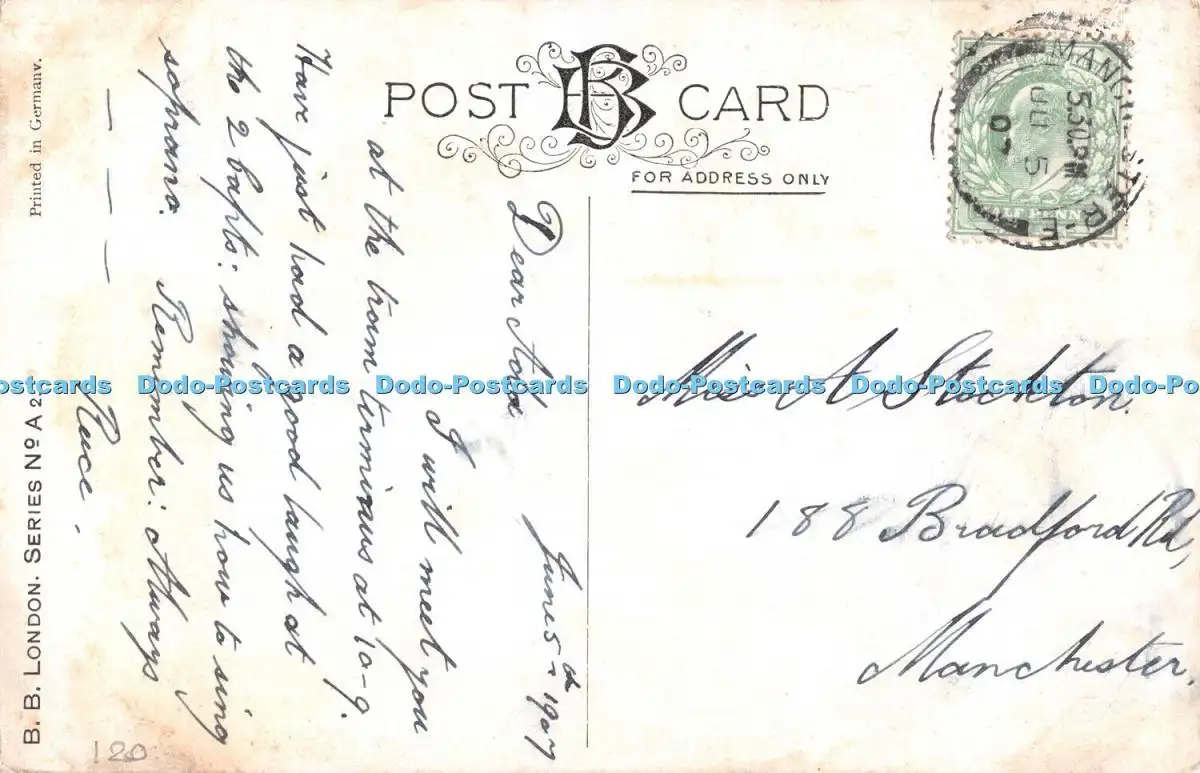 POST BB CARD
FOR ADDRESS ONLY
MANCHESTER-E
5.30PM
JU 5
07
HALF PENNY
Dear Ada
June 5th 1907
I will meet you
at the tram turminus at 10-9.
Have just had a good laugh at
the 2 bapts: showing us how to sing
soprano. Remember: Always
— — — —
Miss A Stockton.
188 Bradford Rd,
Manchester.
Printed in Germany.
B. B. LONDON. SERIES No A 2
120
Dodo-Postcards Dodo-Postcards Dodo-Postcards Dodo-Postcards